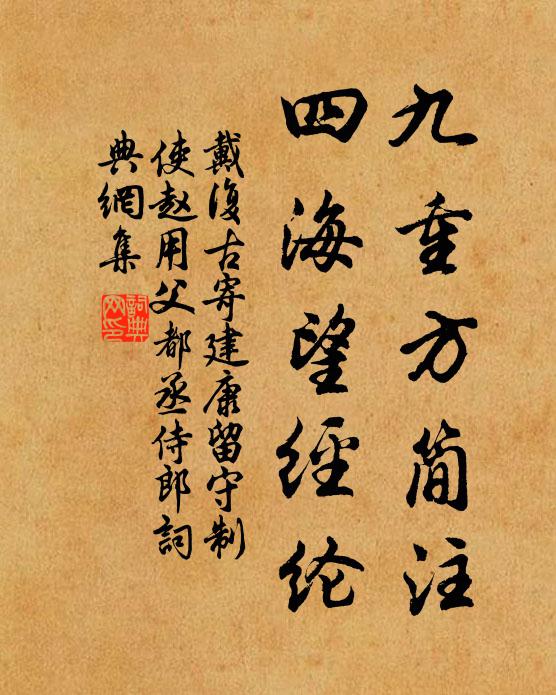 九重方简注
四海望經纶
戴復古寄建康留守制
使赵用父都丞侍郎詞
典網集
詞典
网印